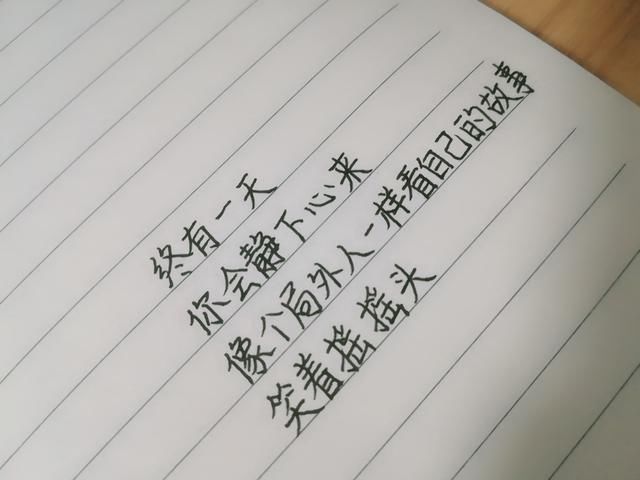 终有一天
你会静下心来
像个局外人一样看自己的故事
笑着摇摇头